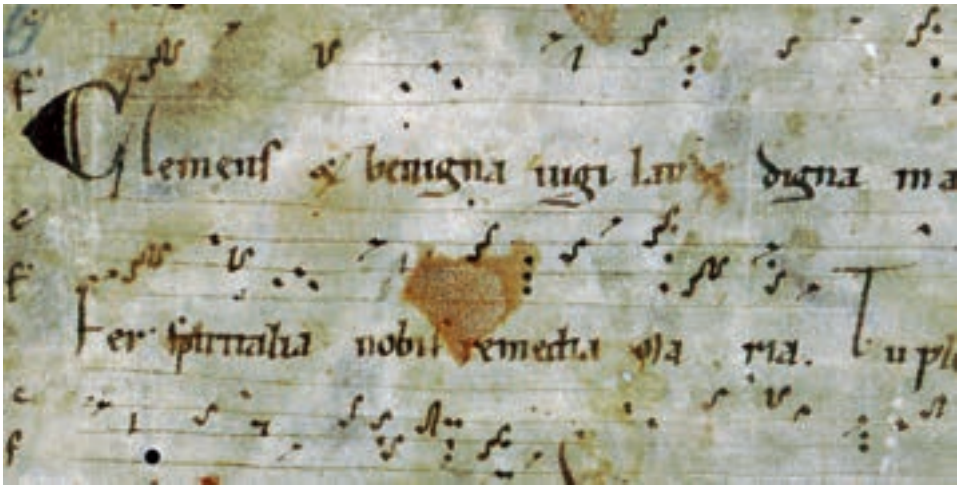 Clemens & benigna iugi laude digna ma
fer spiritalia nobis remedia o maria. Tu ple